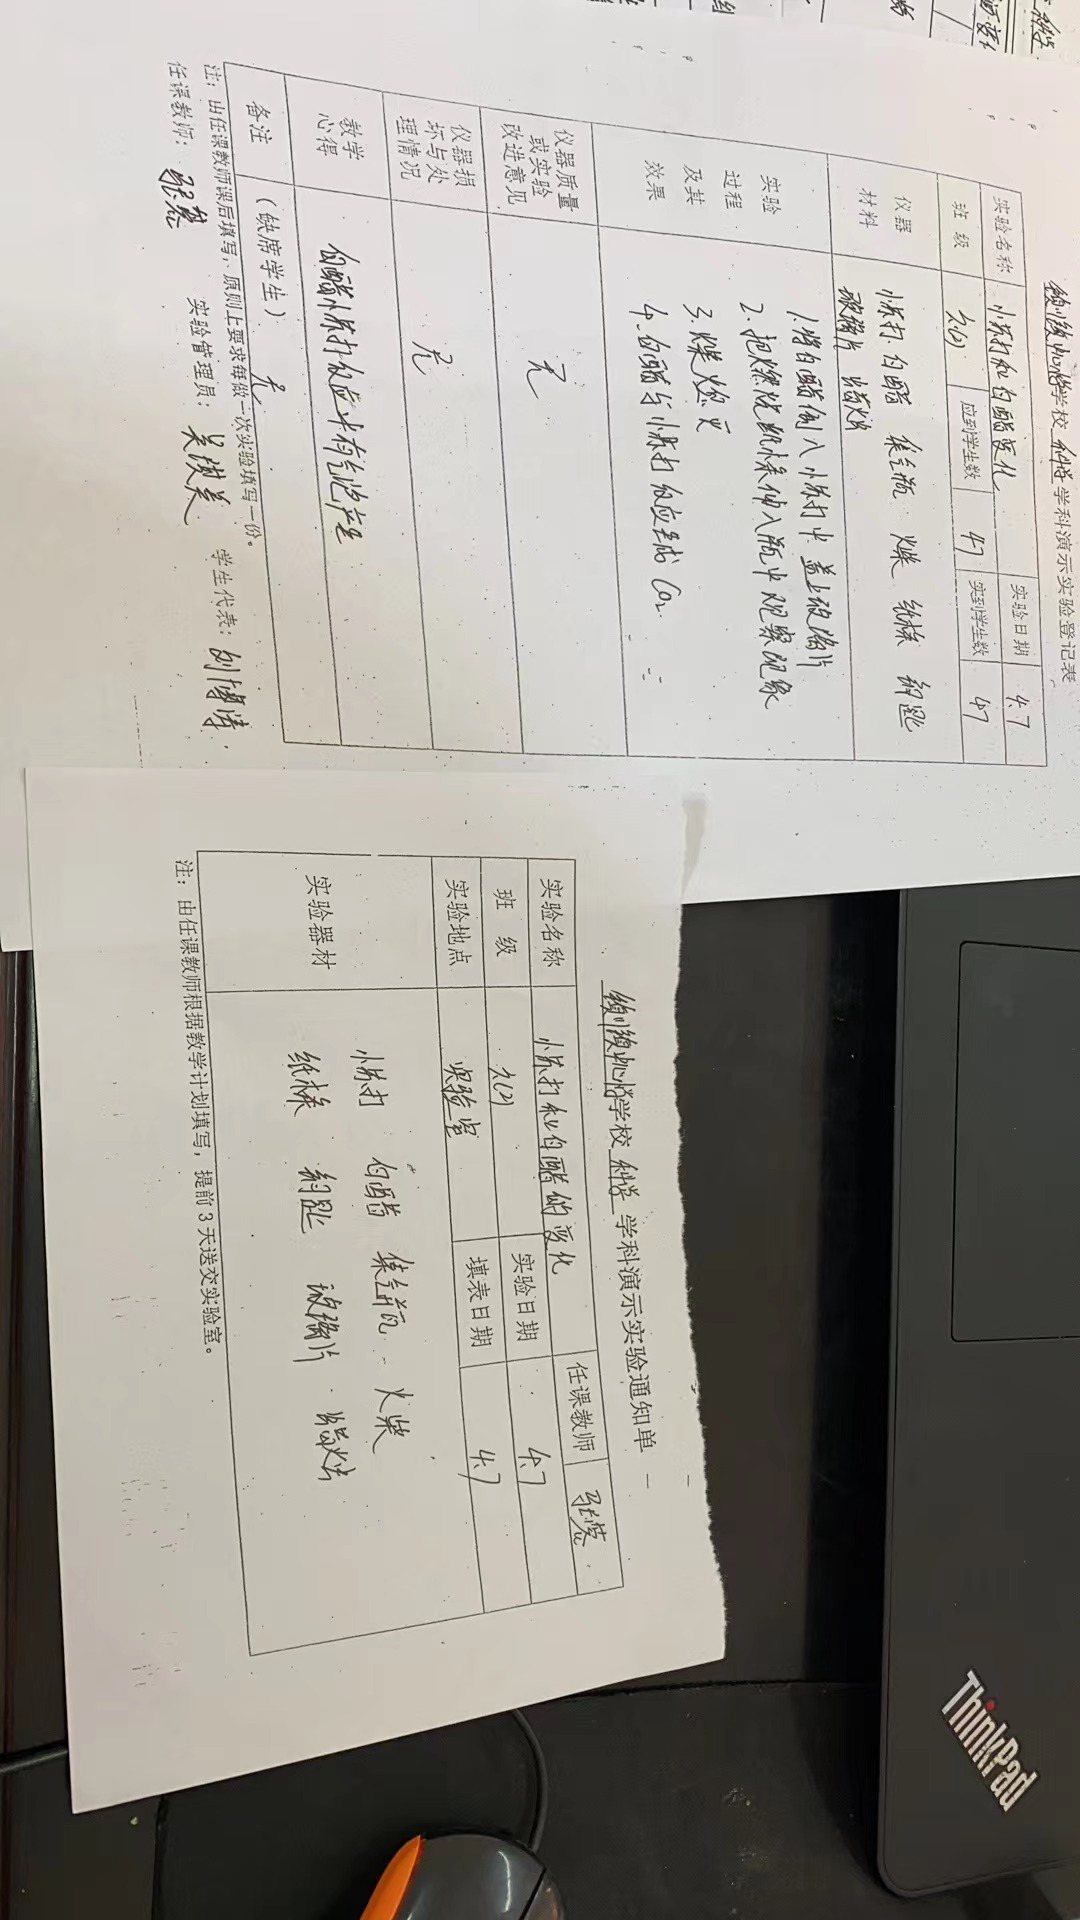 学校 科学 学科演示实验登记表
实验名称 小苏打和白醋变化 实验日期 4.7
班级 六(2) 应到学生数 47 实到学生数 47
仪器材料 小苏打 白醋 集气瓶 火柴 纸条 药匙
玻璃片 蜡烛
实验过程及其效果
1.将白醋倒入小苏打中 盖上玻璃片
2.把燃烧纸条伸入瓶中观察现象
3.火柴熄灭
4.白醋与小苏打反应生成CO₂
仪器质量或实验改进意见 无
仪器损坏与处理情况 无
教学心得 白醋小苏打反应中有气泡产生
备注 (缺席学生) 无
注:由任课教师课后填写,原则上要求每做一次实验填写一份。
任课教师: 实验管理员: 学生代表:
学校 科学 学科演示实验通知单
实验名称 小苏打和白醋的变化 任课教师
班级 六(2) 实验日期 4.7
实验地点 实验室 填表日期 4.7
实验器材 小苏打 白醋 集气瓶 火柴
纸条 药匙 玻璃片 蜡烛
注:由任课教师根据教学计划填写,提前3天送交实验室。
ThinkPad